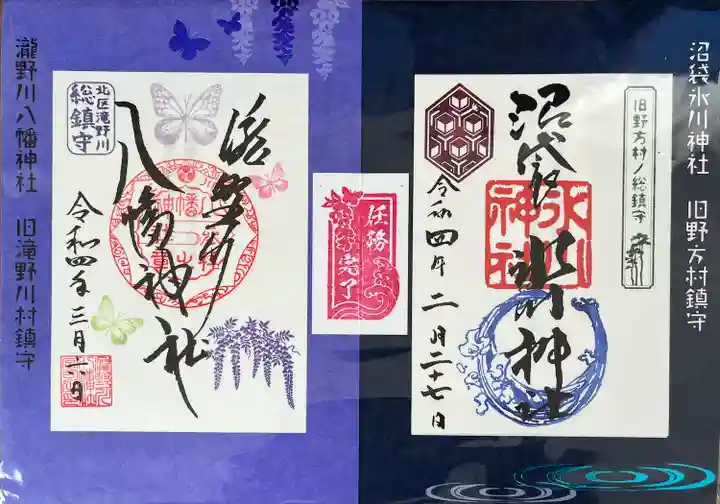 沼袋氷川神社　旧野方村鎮守
旧野方村ノ総鎮守
沼袋
氷川神社
氷川
神社
令和四年二月二十七日
任務
完了
瀧野川
八幡神社
北区滝野川
総鎮守
令和四年三月六日
瀧野川八幡神社　旧滝野川村鎮守